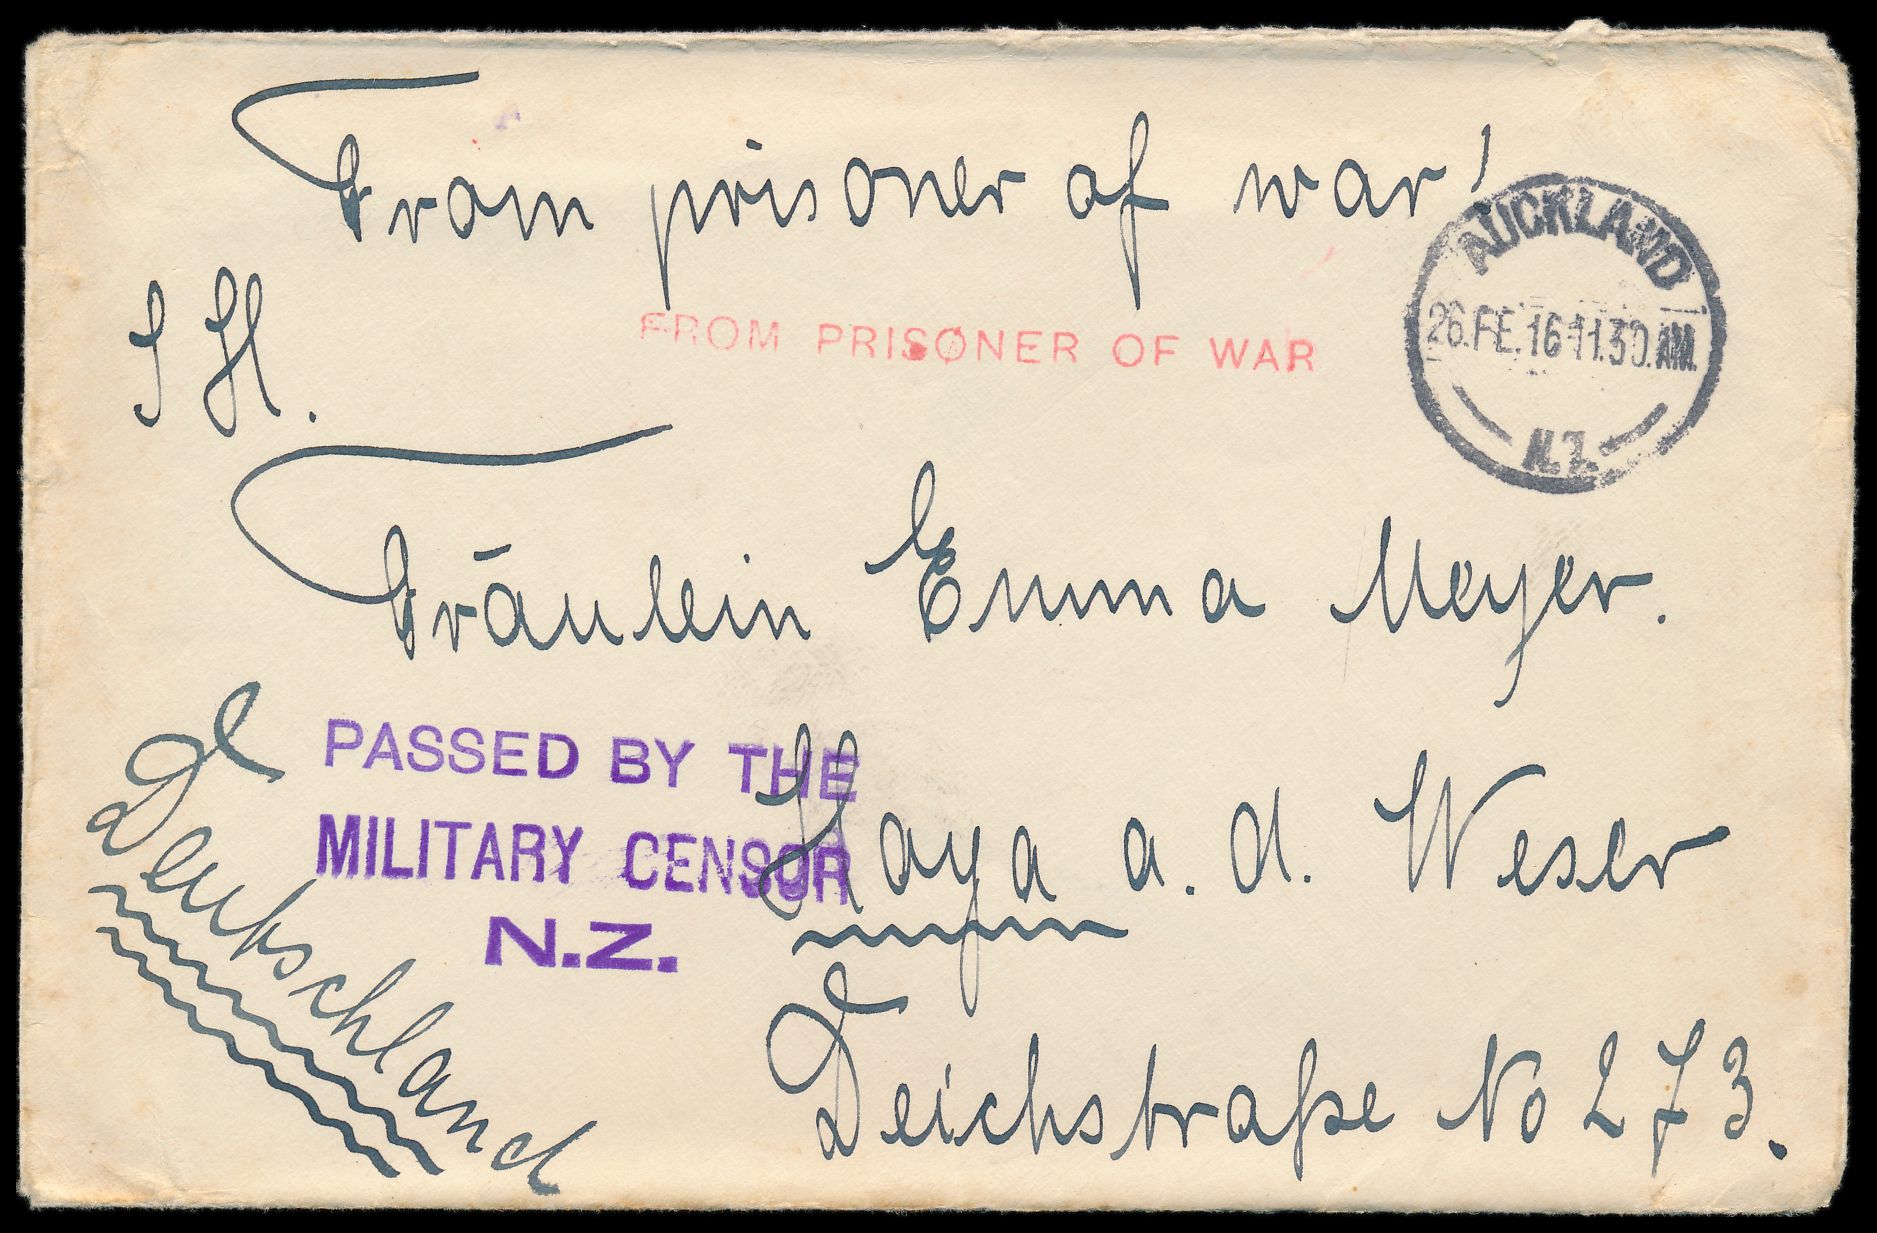 From prisoner of war!
AUCKLAND
26.FE.16 11.30.AM.
N.Z.
FROM PRISONER OF WAR
Fräulein Emma Meyer.
PASSED BY THE
MILITARY CENSOR
N.Z.
Hoya a. d. Weser
Deutschland
Deichstraße No 273.